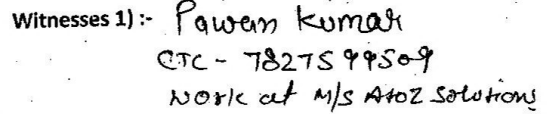 Witnesses 1) :- Pawan Kumar
CTC - 7827599509
Work at M/S AtoZ Solutions